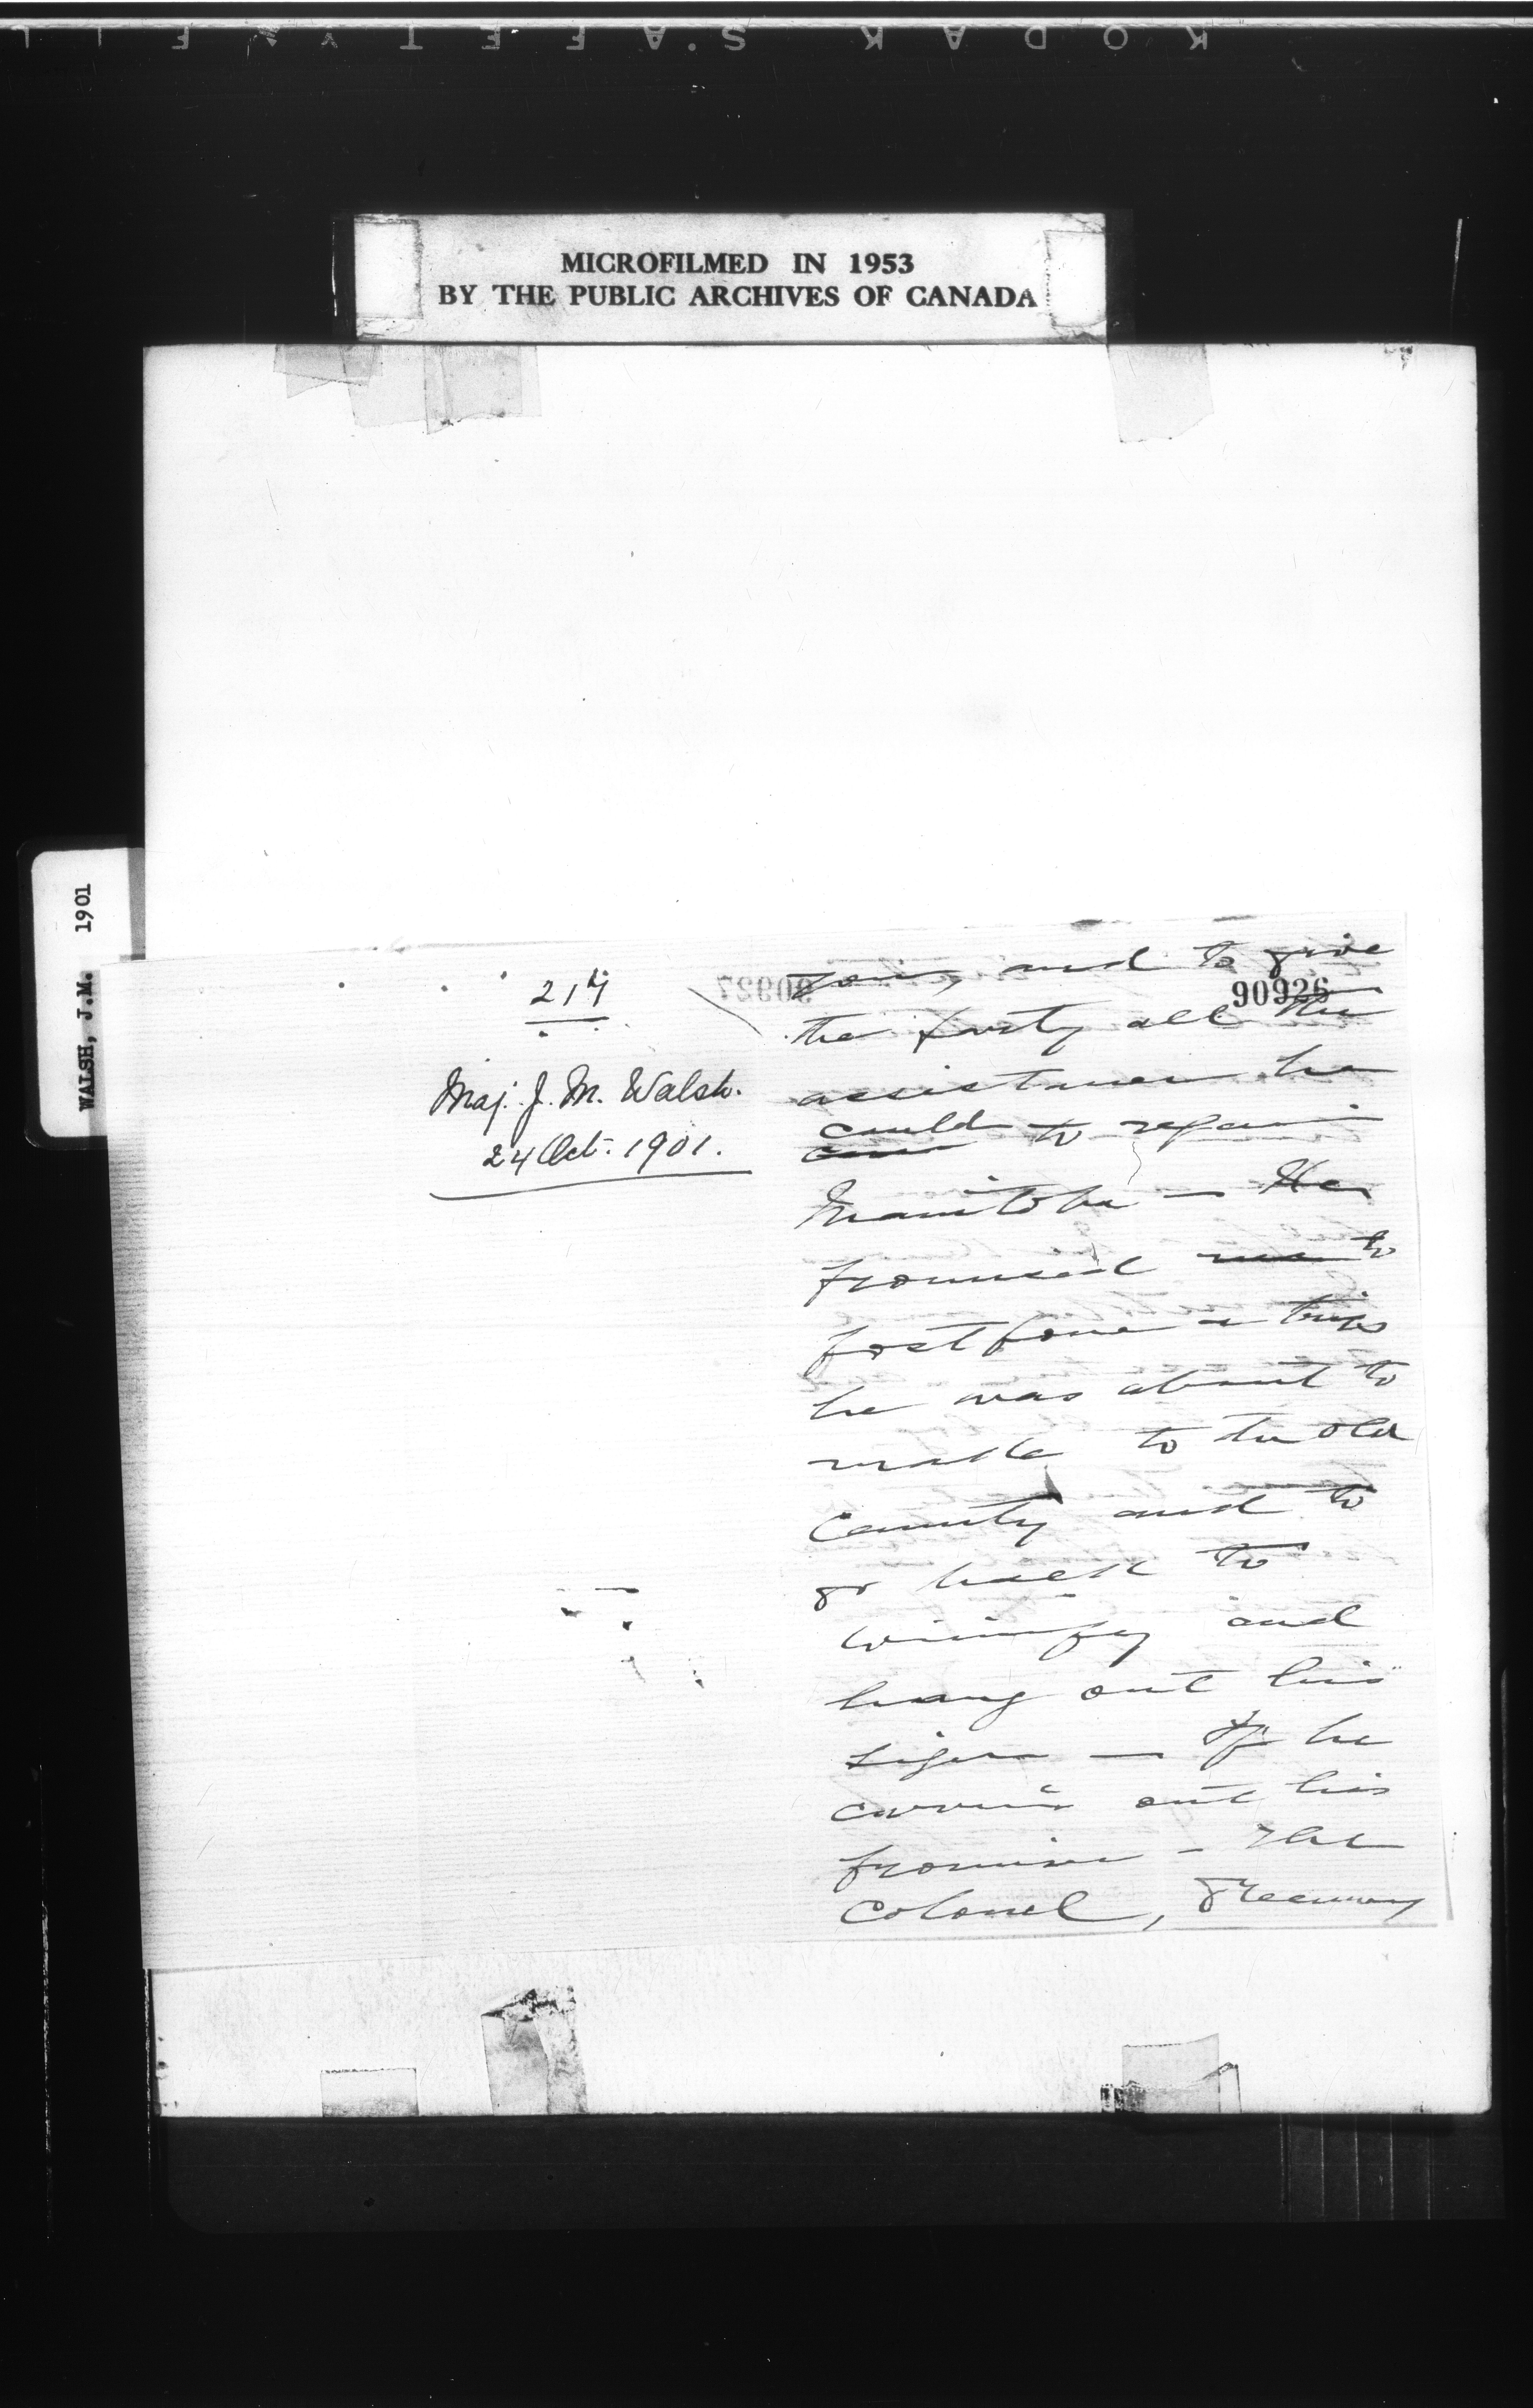 KODAK S.A.F.E.T.Y. F I L
MICROFILMED IN 1953
BY THE PUBLIC ARCHIVES OF CANADA
WALSH, J.M. 1901
21
Maj. J. M. Walsh.
24 Oct. 1901.
90927
90926
and to give
the party all the
assistance he
could to regain
Manitoba — He
promised to
postpone a trip
he was about to
make to the old
Country and to
go back to
Winnipeg and
hang out his
sign — If he
carries out his
promise - The
Colonel, Greenway